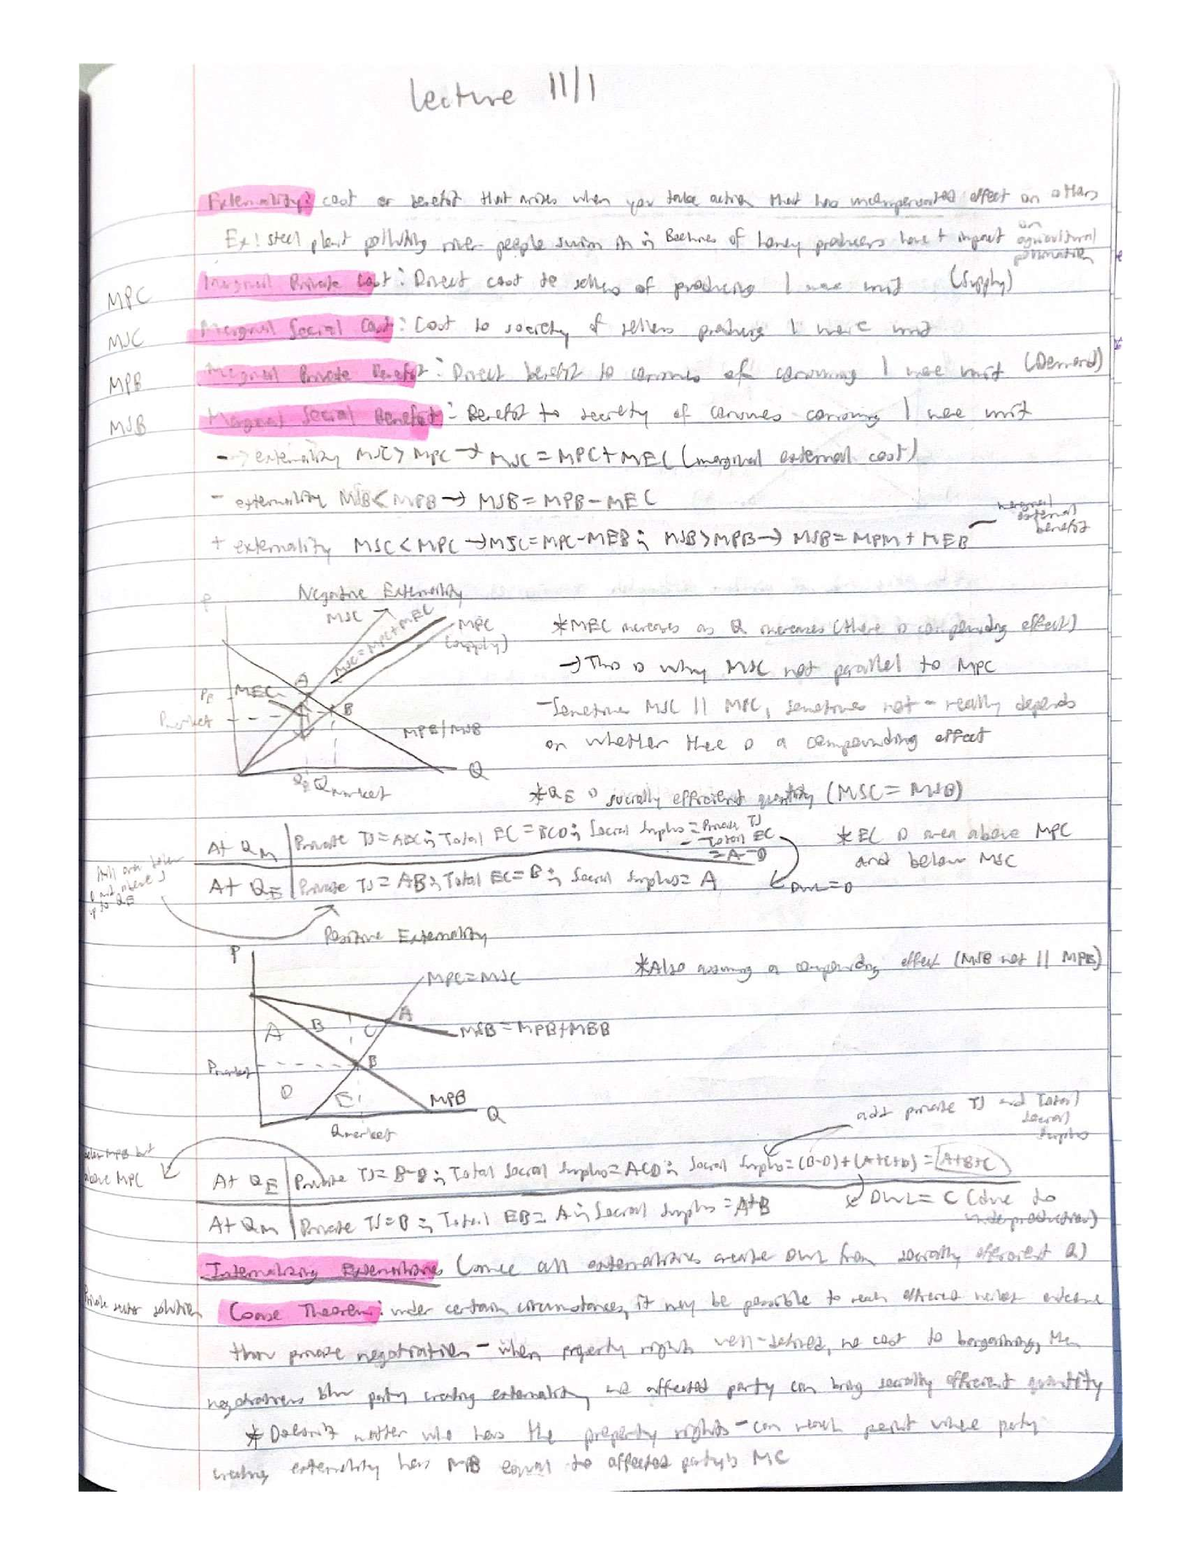 Lecture 11/1
Externality: cost or benefit that arises when you take action that has uncompensated effect on others
Ex: steel plant polluting river people swim in ; Beehives of honey producers have + impact on agricultural pollination
MPC Marginal Private Cost: Direct cost to sellers of producing 1 more unit (Supply)
MSC Marginal Social Cost: Cost to society of sellers producing 1 more unit
MPB Marginal Private Benefit: Direct benefit to consumers of consuming 1 more unit (Demand)
MSB Marginal Social Benefit: Benefit to society of consumers consuming 1 more unit
- externality MSC > MPC → MSC = MPC + MEC (marginal external cost)
- externality MSB < MPB → MSB = MPB - MEC
+ externality MSC < MPC → MSC = MPC - MEB ; MSB > MPB → MSB = MPM + MEB
marginal external benefit
Negative Externality
P
MSC
MSC = MPC + MEC
MPC
(supply)
A
PE
MEC
B
Pmarket
MPB/MSB
Q
QE Qmarket
*MEC increases as Q increases (there is compounding effect)
→ This is why MSC not parallel to MPC
- Sometimes MSC || MPC, sometimes not - really depends
on whether there is a compounding effect
*QE is socially efficient quantity (MSC = MSB)
At QM Private TS = ABC ; Total EC = BCD ; Social Surplus = Private TS
- Total EC
= A - D
At QE Private TS = AB ; Total EC = B ; Social Surplus = A
DWL = D
*EC is area above MPC
and below MSC
Positive Externality
P
MPC = MSC
A
A B C
MSB = MPB + MBB
Pmarket
B
D E
MPB
Q
Qmarket
*Also assuming a compounding effect (MSB not || MPB)
add private TS and total social surplus
below MPB but
above MPC
At QE Private TS = B-D ; Total Social Surplus = ACD ; Social Surplus = (B-D) + (A+C+D) = A+B+C
DWL = C (due to
underproduction)
At QM Private TS = B ; Total EB = A ; Social Surplus = A+B
Internalizing Externalities (since all externalities create DWL from socially efficient Q)
Private sector solution Coase Theorem: under certain circumstances, it may be possible to reach efficient market outcome
thru private negotiation - when property rights well-defined, no cost to bargaining, then
negotiations btw party creating externality and affected party can bring socially efficient quantity
* Doesn't matter who has the property rights - can reach point where party
creating externality has MB equal to affected party's MC